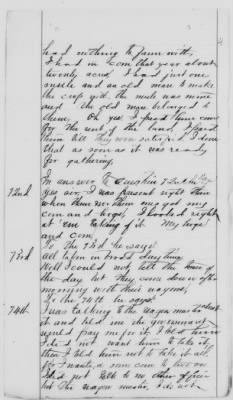 had nothing to farm with.
I had in corn that year about
twenty acres, I had just one
mule and an old man to make
the crop with the mule was mine
and the old man belonged to
them. Oh yes I paid them corn
for the rent of the land. I paid
them till they were satisfied I done
that as soon as it was ready
for gathering.
In answer to Question 72nd he says
72nd Yes sir, I was present right there
when them men got my
corn and hogs, I looked right
at 'em taking of it. My hogs
and corn
To the 73rd he says
73rd All taken in broad day time
Well I could not tell the time of
the day but they come down in the
morning with their wagons.
To the 74th he says
74th I was talking to the wagon master about
it and told me the government
would pay me for it. I told them
I did not want him to take it,
then I told him not to take it all,
for I wanted some corn to live on
I did not talk to no other officer
but the wagon master, I